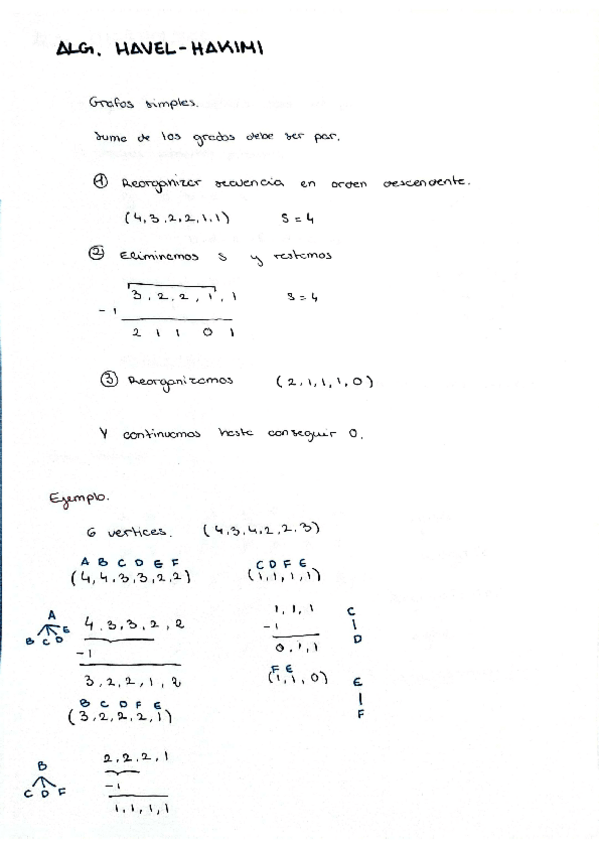 ALG. HAVEL-HAKIMI
Grafos simples.
Suma de los grados debe ser par.
① Reorganizar secuencia en orden descendente.
(4,3,2,2,1,1) S = 4
② Eliminamos S y restamos
3, 2, 2, 1, 1 S = 4
- 1
2 1 1 0 1
③ Reorganizamos (2,1,1,1,0)
Y continuamos hasta conseguir 0.
Ejemplo.
6 vertices. (4,3,4,2,2,3)
A B C D E F
(4,4,3,3,2,2)
A
B C D E
4,3,3,2,2
-1
3,2,2,1,2
B C D F E
(3,2,2,2,1)
B
C D F
2,2,2,1
-1
1,1,1,1
C D F E
(1,1,1,1)
1,1,1
-1
0,1,1
C
D
F E
(1,1,0)
E
F